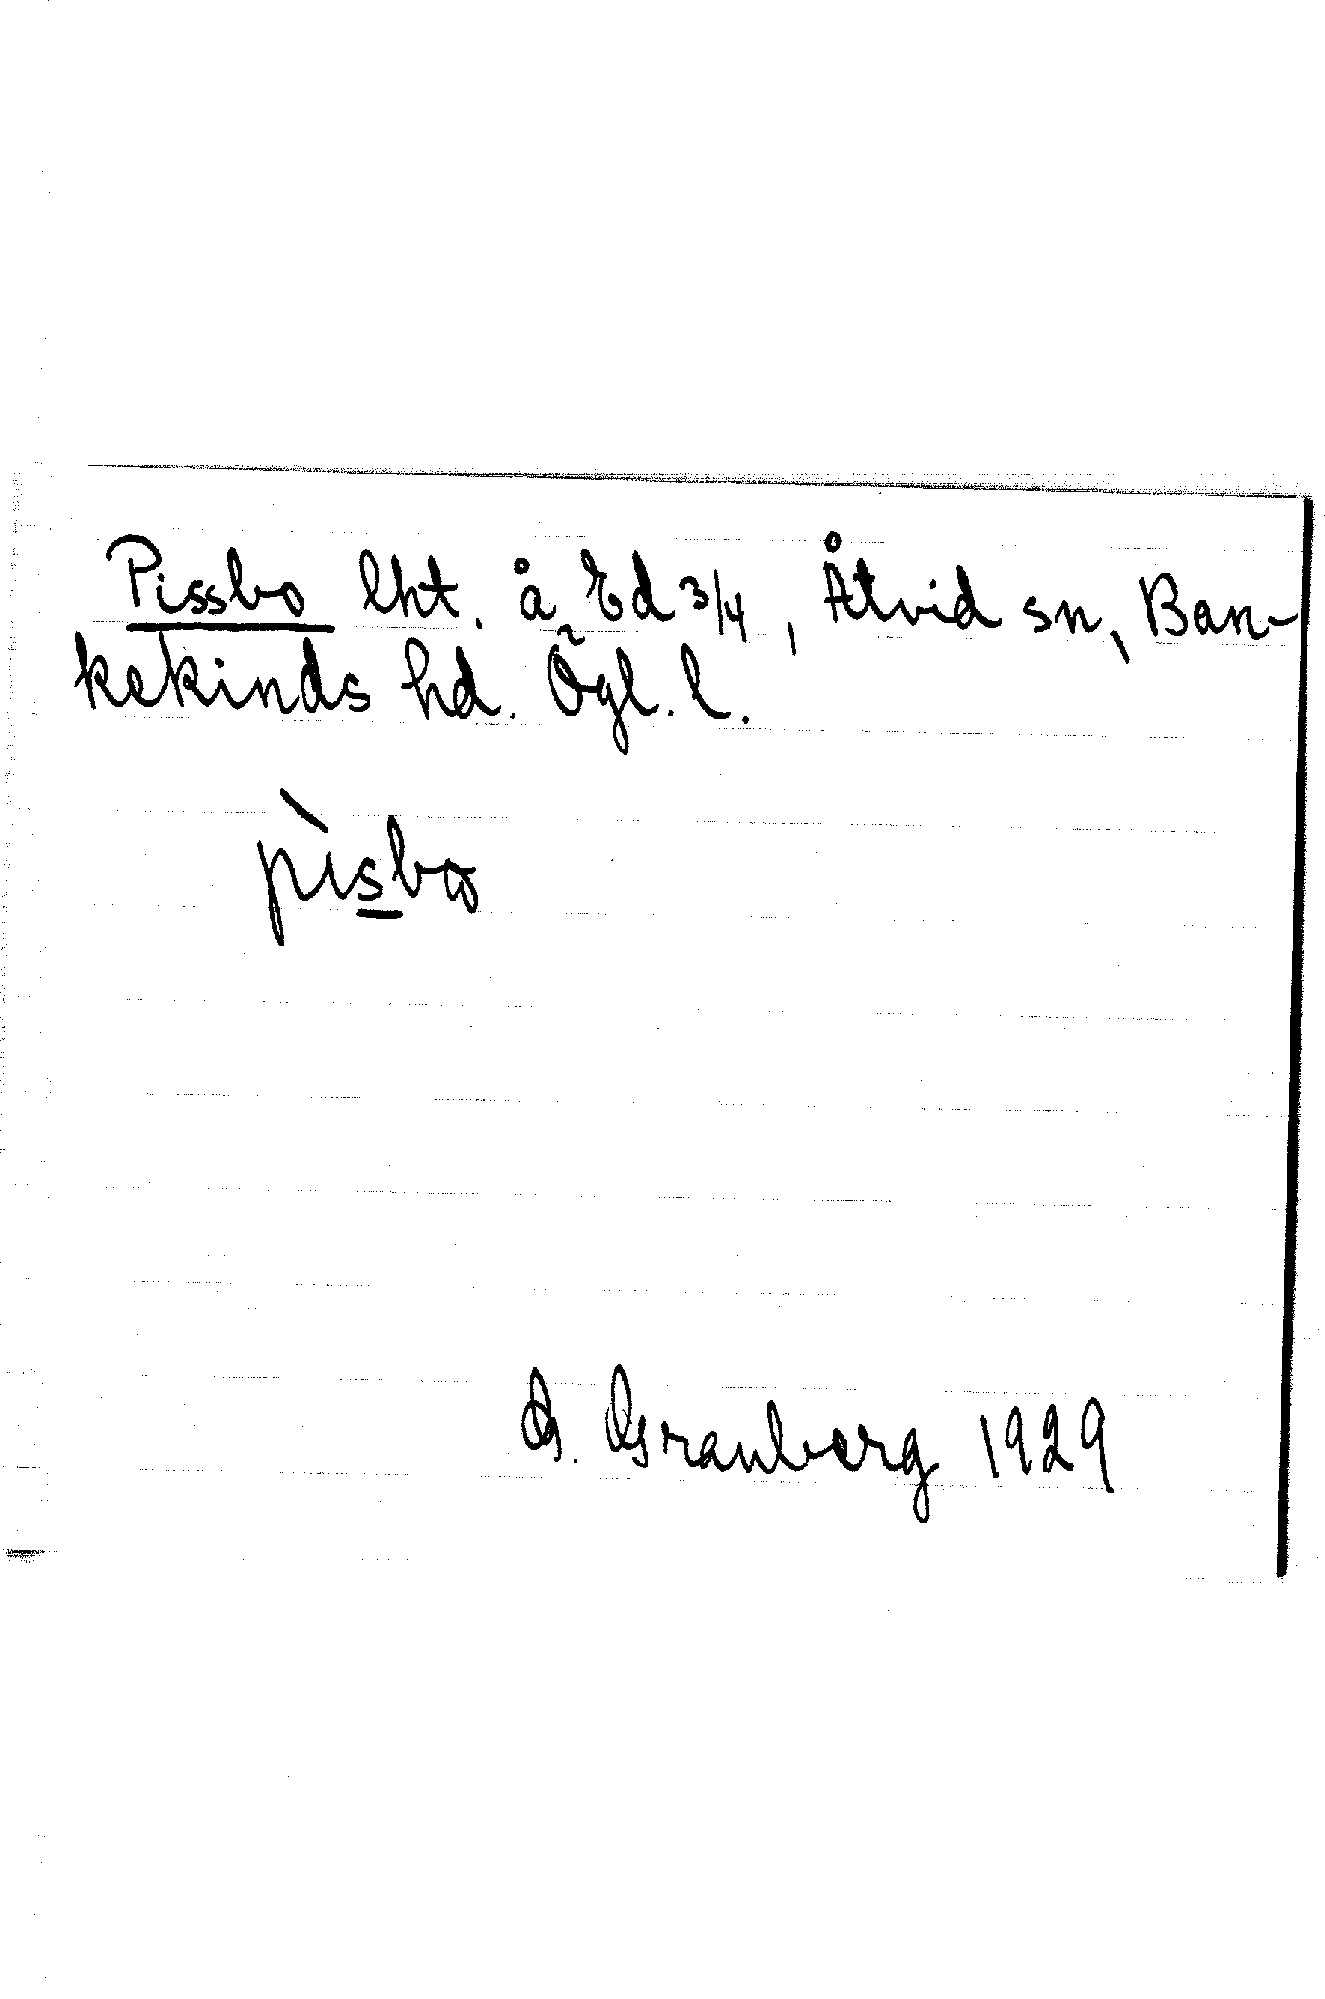 Pissbo lht. å Ed 3/4, Åtvid sn, Ban-
kekinds hd. Ögl. l.
pìsbo
G. Granberg 1929